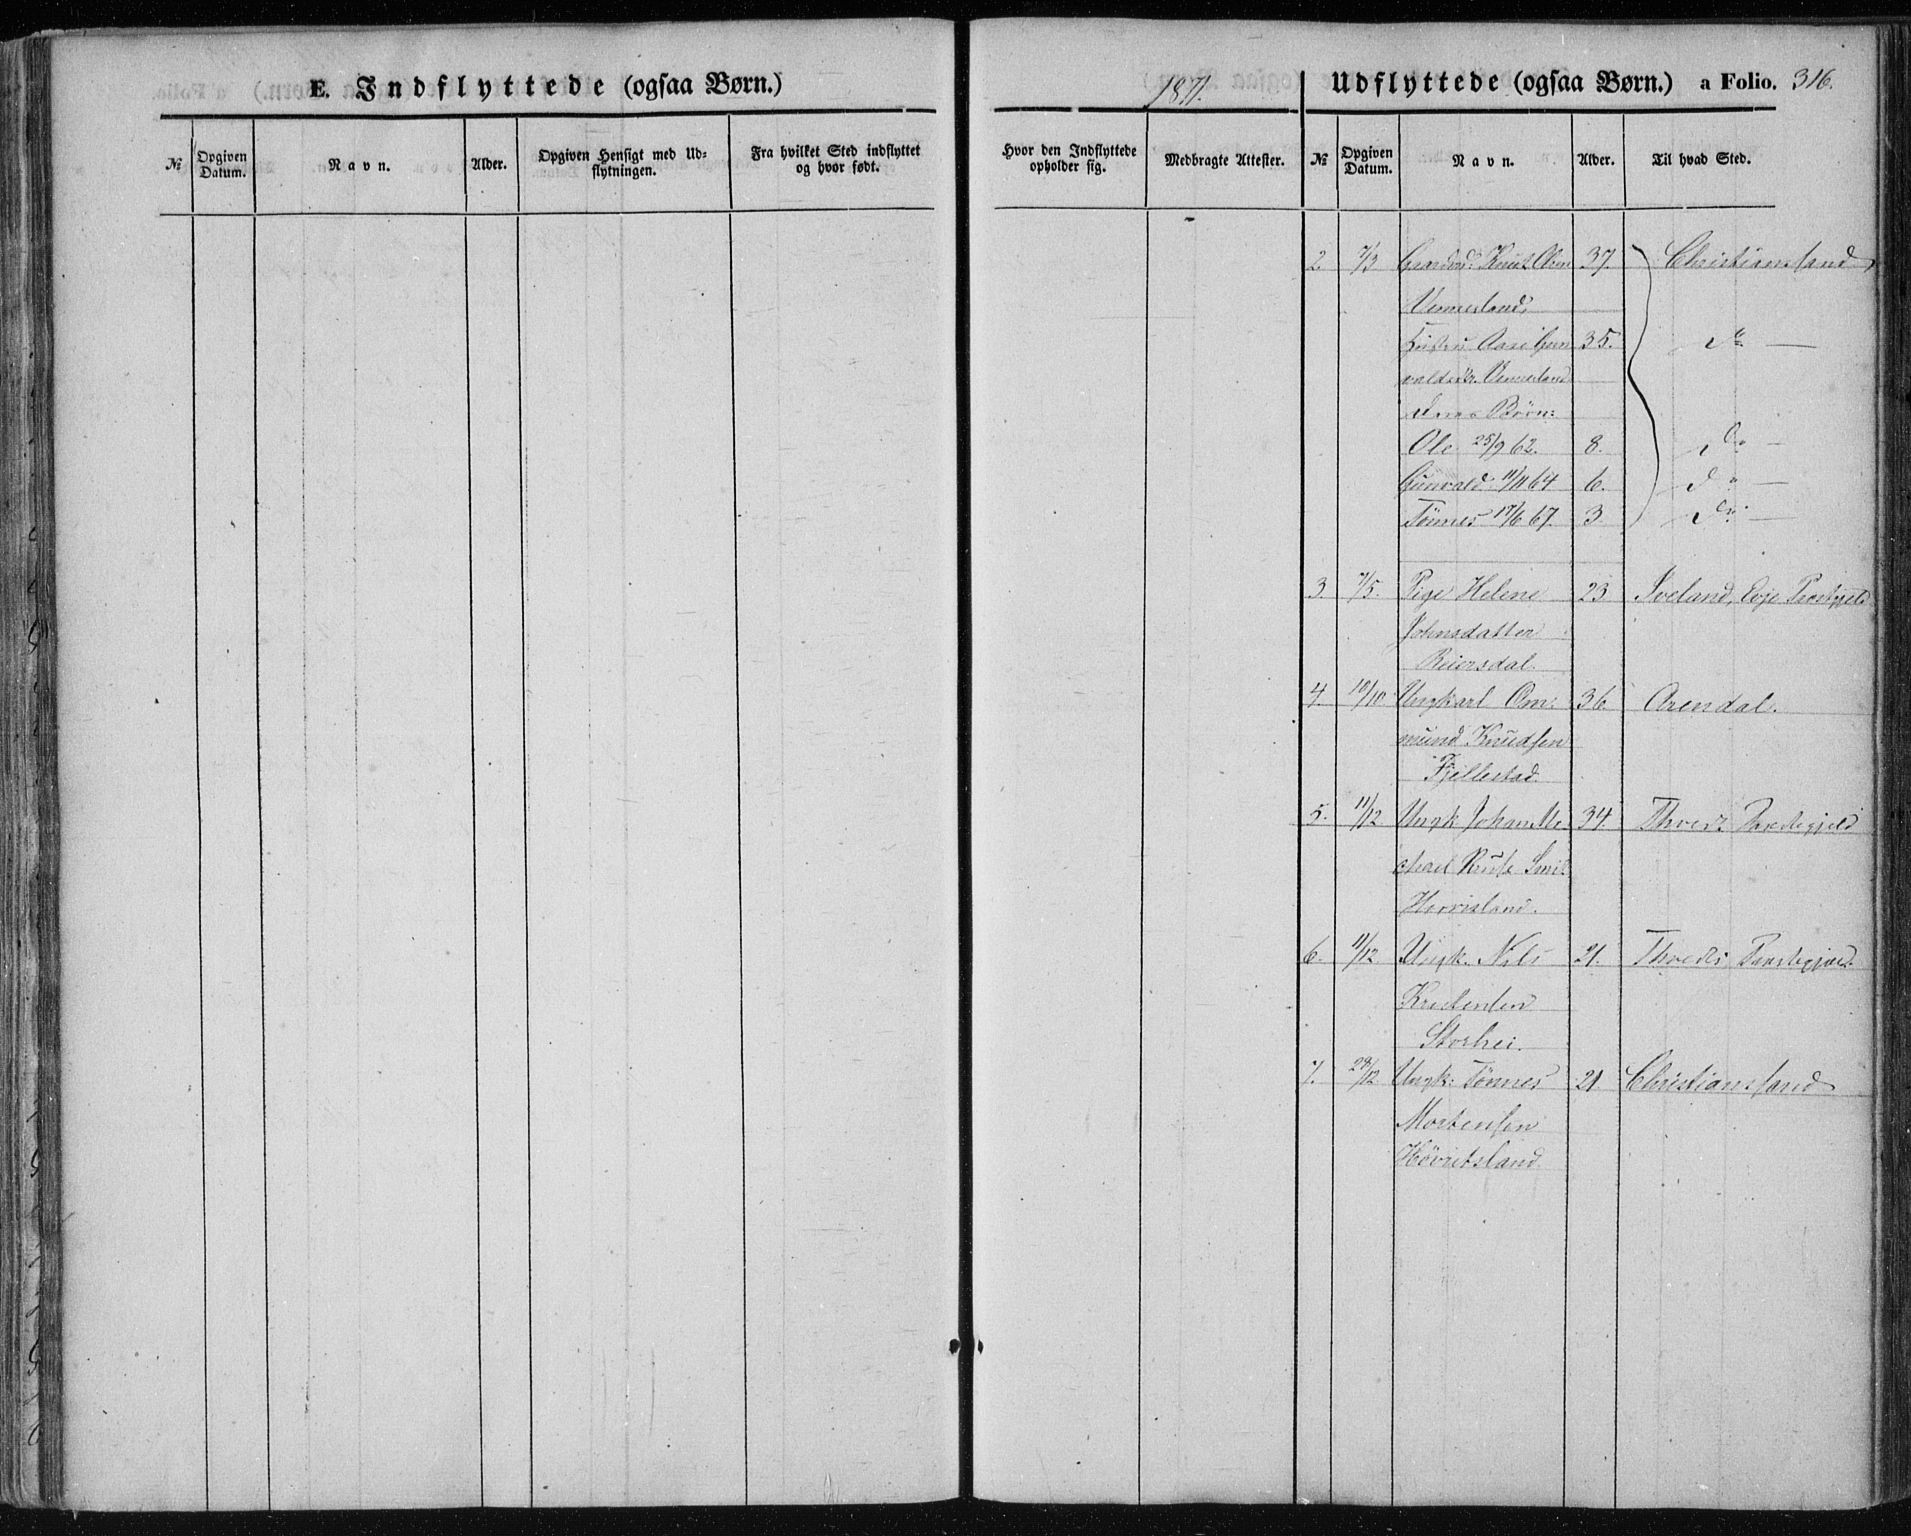 E. Indflyttede (ogsaa Børn.)
1871.
Udflyttede (ogsaa Børn.) a Folio. 316.
№ Opgiven Datum. Navn. Alder. Opgiven Hensigt med Udflytningen. Fra hvilket Sted indflyttet og hvor født.
Hvor den Indflyttede opholder sig. Medbragte Attester. № Opgiven Datum. Navn. Alder. Til hvad Sted.
2. 7/3 Knut Olsen 37. Christiansand
Vennesland,
Hustru Aase Gun 35. do
valdsdtr. Vennesland
Børn:
Ole 25/9 62. 8. do
Gunvald 11/11 64 6. do
Tönnes 17/6 67. 3. do
3 7/5. Pige Helene 23 Sveland, Evje Præstegjeld
Johnsdatter
Reiersdal.
4. 10/10. Ungkarl Om: 36. Arendal.
mund Knudsen
Fjellestad.
5. 11/12 Ungk Johan Mi 34. Thveit Præstegjeld
chael
6. 11/12 Ungk. Nils 21. Thveds Præstegjeld
Kristensen
Storhei.
7. 29/12 Ungk: Tönnes 21. Christiansand
Mortensen
Hövretsland.